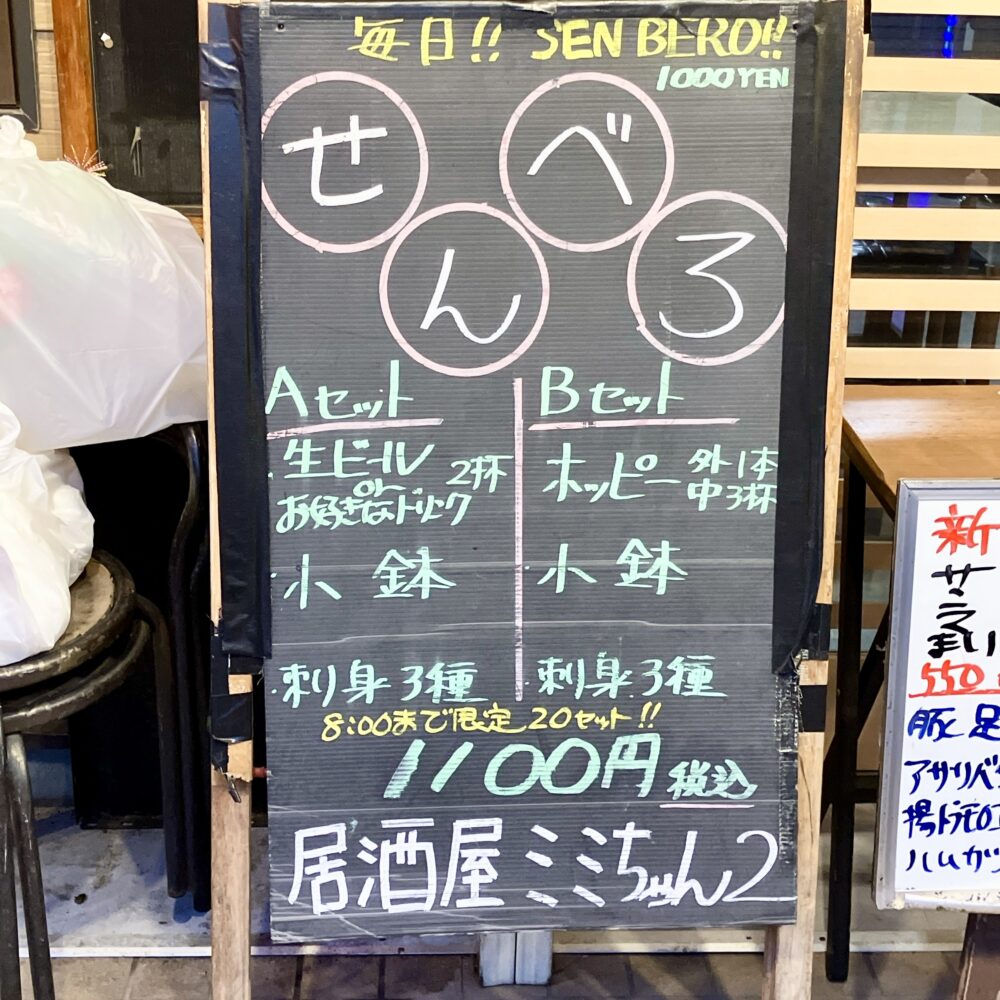 毎日!! SEN BERO!!
1000YEN
せんべろ
Aセット
・生ビール 2杯
or
お好きなドリンク
・小鉢
・刺身3種
Bセット
・ホッピー 外1本
中3杯
・小鉢
・刺身3種
8:00まで限定20セット!!
1100円税込
居酒屋ミミちゃん2
新
サンマ
550
豚足
アサリバ
ハムカツ